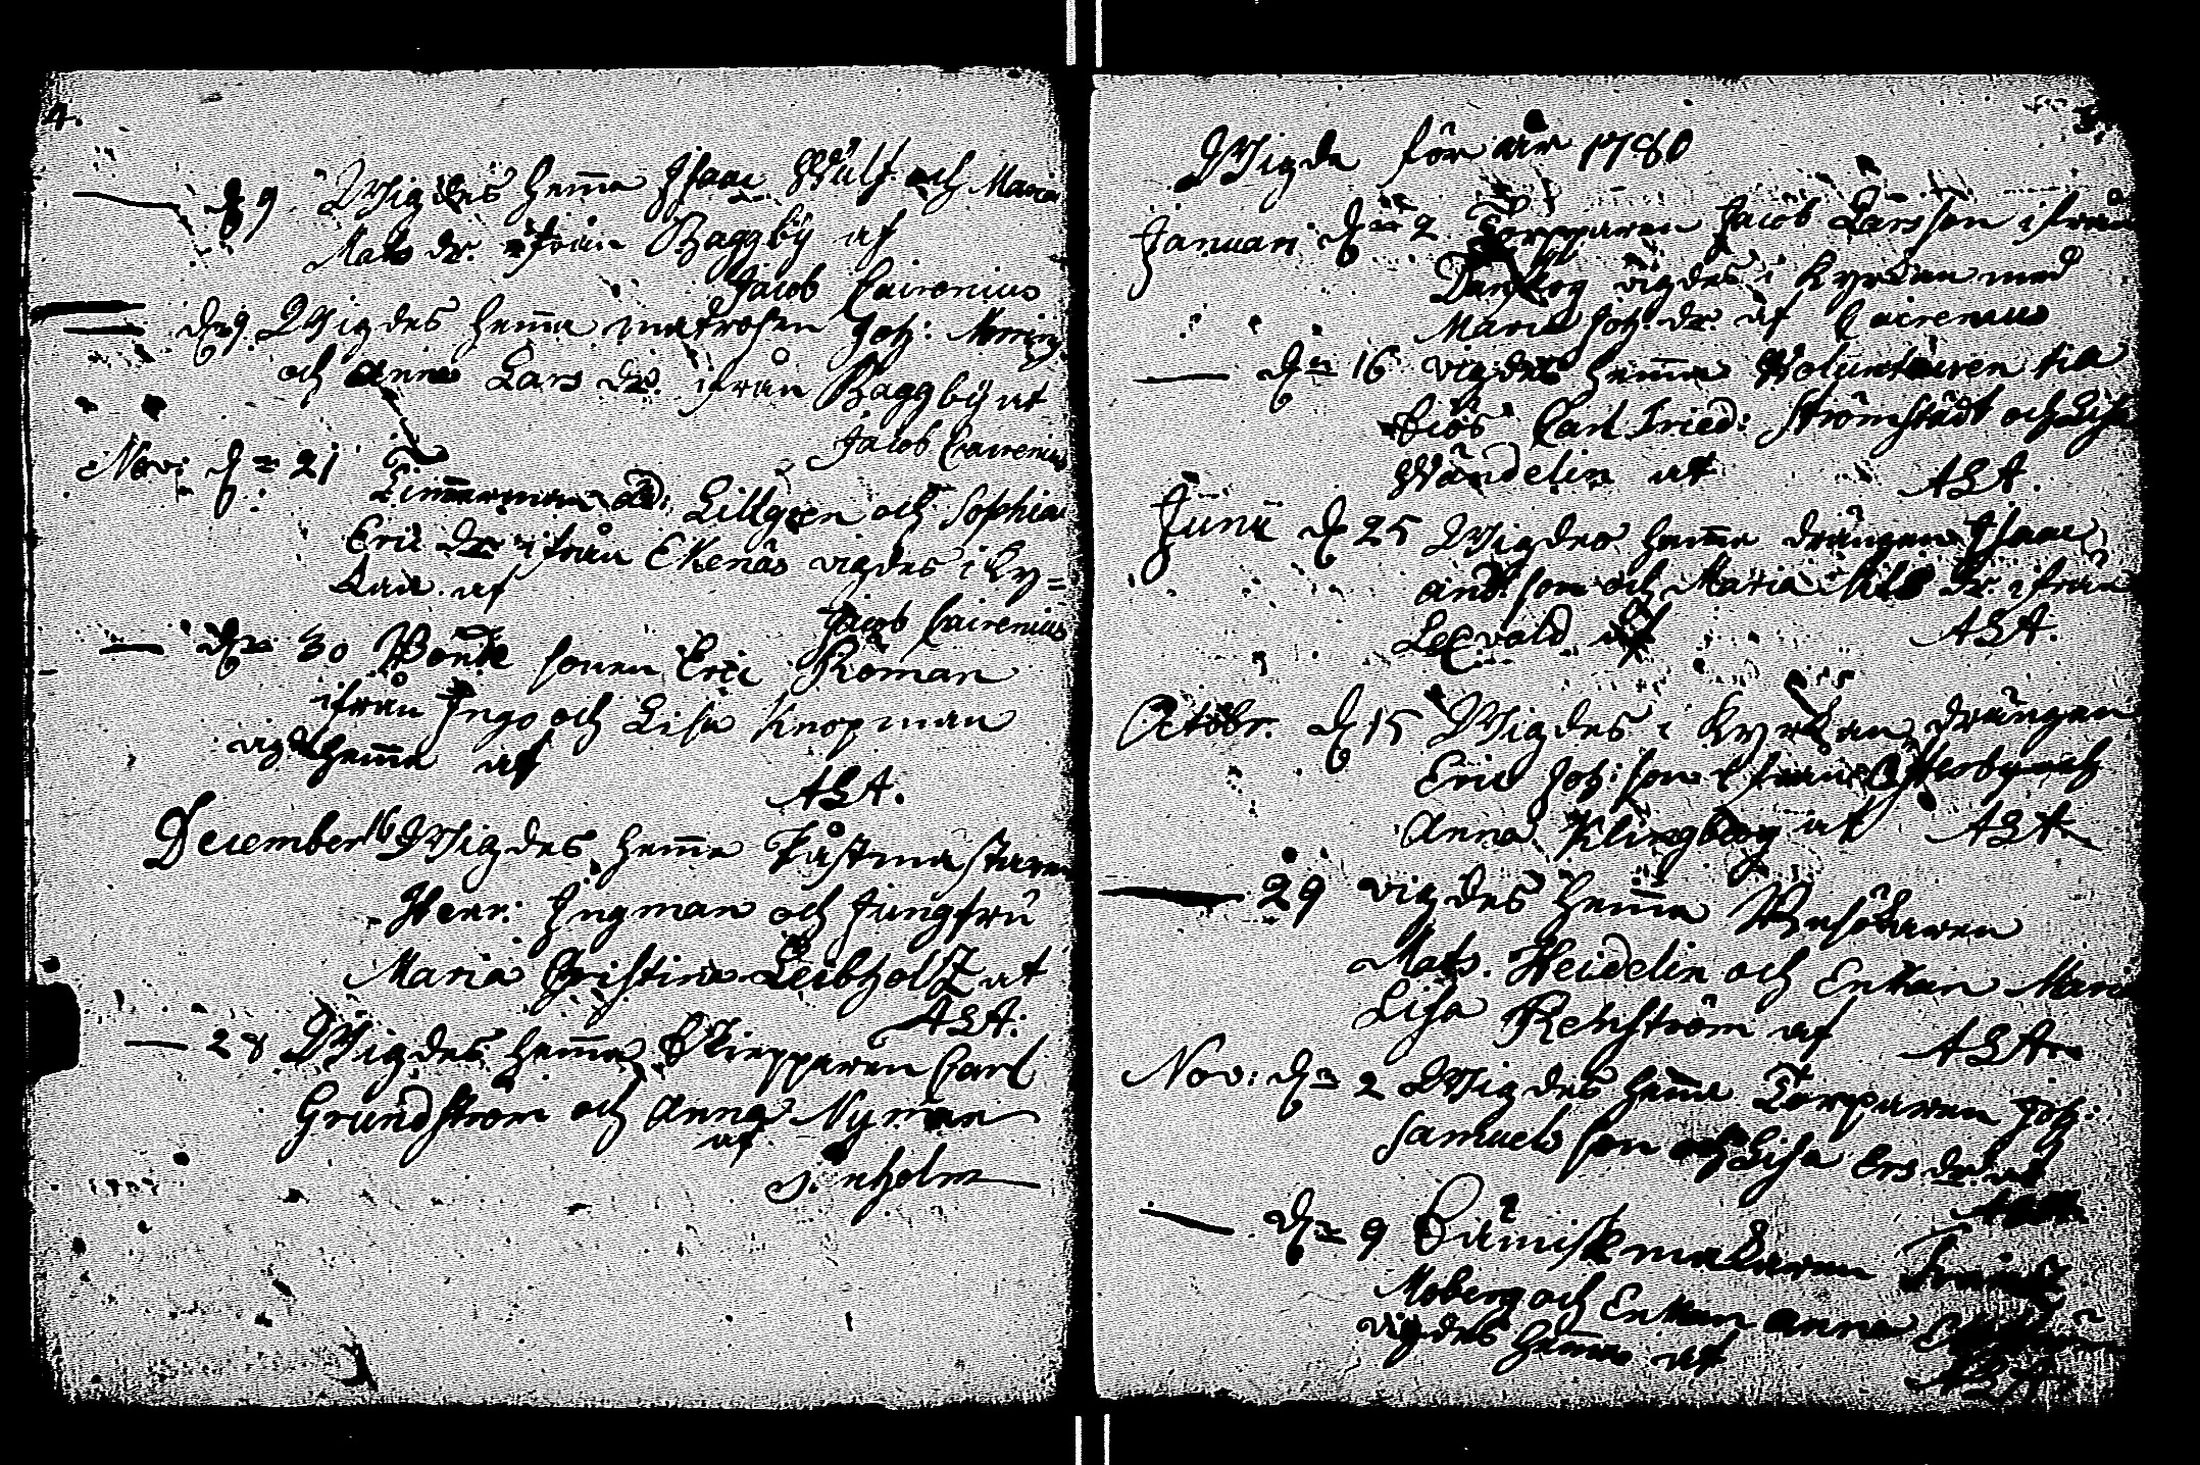 4.
d 9 Wigdes hem̅a Isaac Wulf och Maria
Mats dr. ifrån Baggby af
Jacob Cairenius
d 9 Wigdes hem̅a matrosen Joh:
och Anna Lars dr. ifrån Baggby af
Jacob Cairenius
Nov: d 21 Tim̅erman Lillgren och Sophia
Eric dr ifrån Ekenäs vigdes i Ky=
kan af
Jacob Cairenius
dn 30 Bonde sonen Eric Roman
ifrån Ingo och Lisa Knopman
vigd hem̅a af
ALA.
December 16 Wigdes hem̅a Påstmästaren
Herr: Ingman och Jungfru
Maria Christina Leibholtz af
ALA:
28 Wigdes hem̅a Skepparen Carl
Grundström och Anna Nyman
af
Wigde för år 1780
Januari dn 2 Torpparen Jacob Larsson ifrån
Danskog vigdes i Kyrkan med
Maria Joh. dr. af Cairenius
dn 16 vigdes hem̅a Volunteuren till
Carl Fried: Strömstädt och Lisa
Wändelin af ALA.
Junii d 25 Wigdes hem̅a drängen Isaac
And. son och Maria Nils dr. ifrån
Lexvald af ALA.
Octobr. d 15 Wigdes i Kyrkan drängen
Eric Joh: son ifrån Österby och
Anna Klingberg af ALA
29 vigdes hem̅a Besökaren
Mats. Heidelin och Enkan Maria
Lisa Rehström af ALA
Nov: dn 2 Wigdes hem̅a Torparen Joh:
Samuels son och Lisa Ers dr. af
ALA
dn 9 Sämiskmakaren Frantz
Moberg och Enkan Anna
vigdes hem̅a af ALA